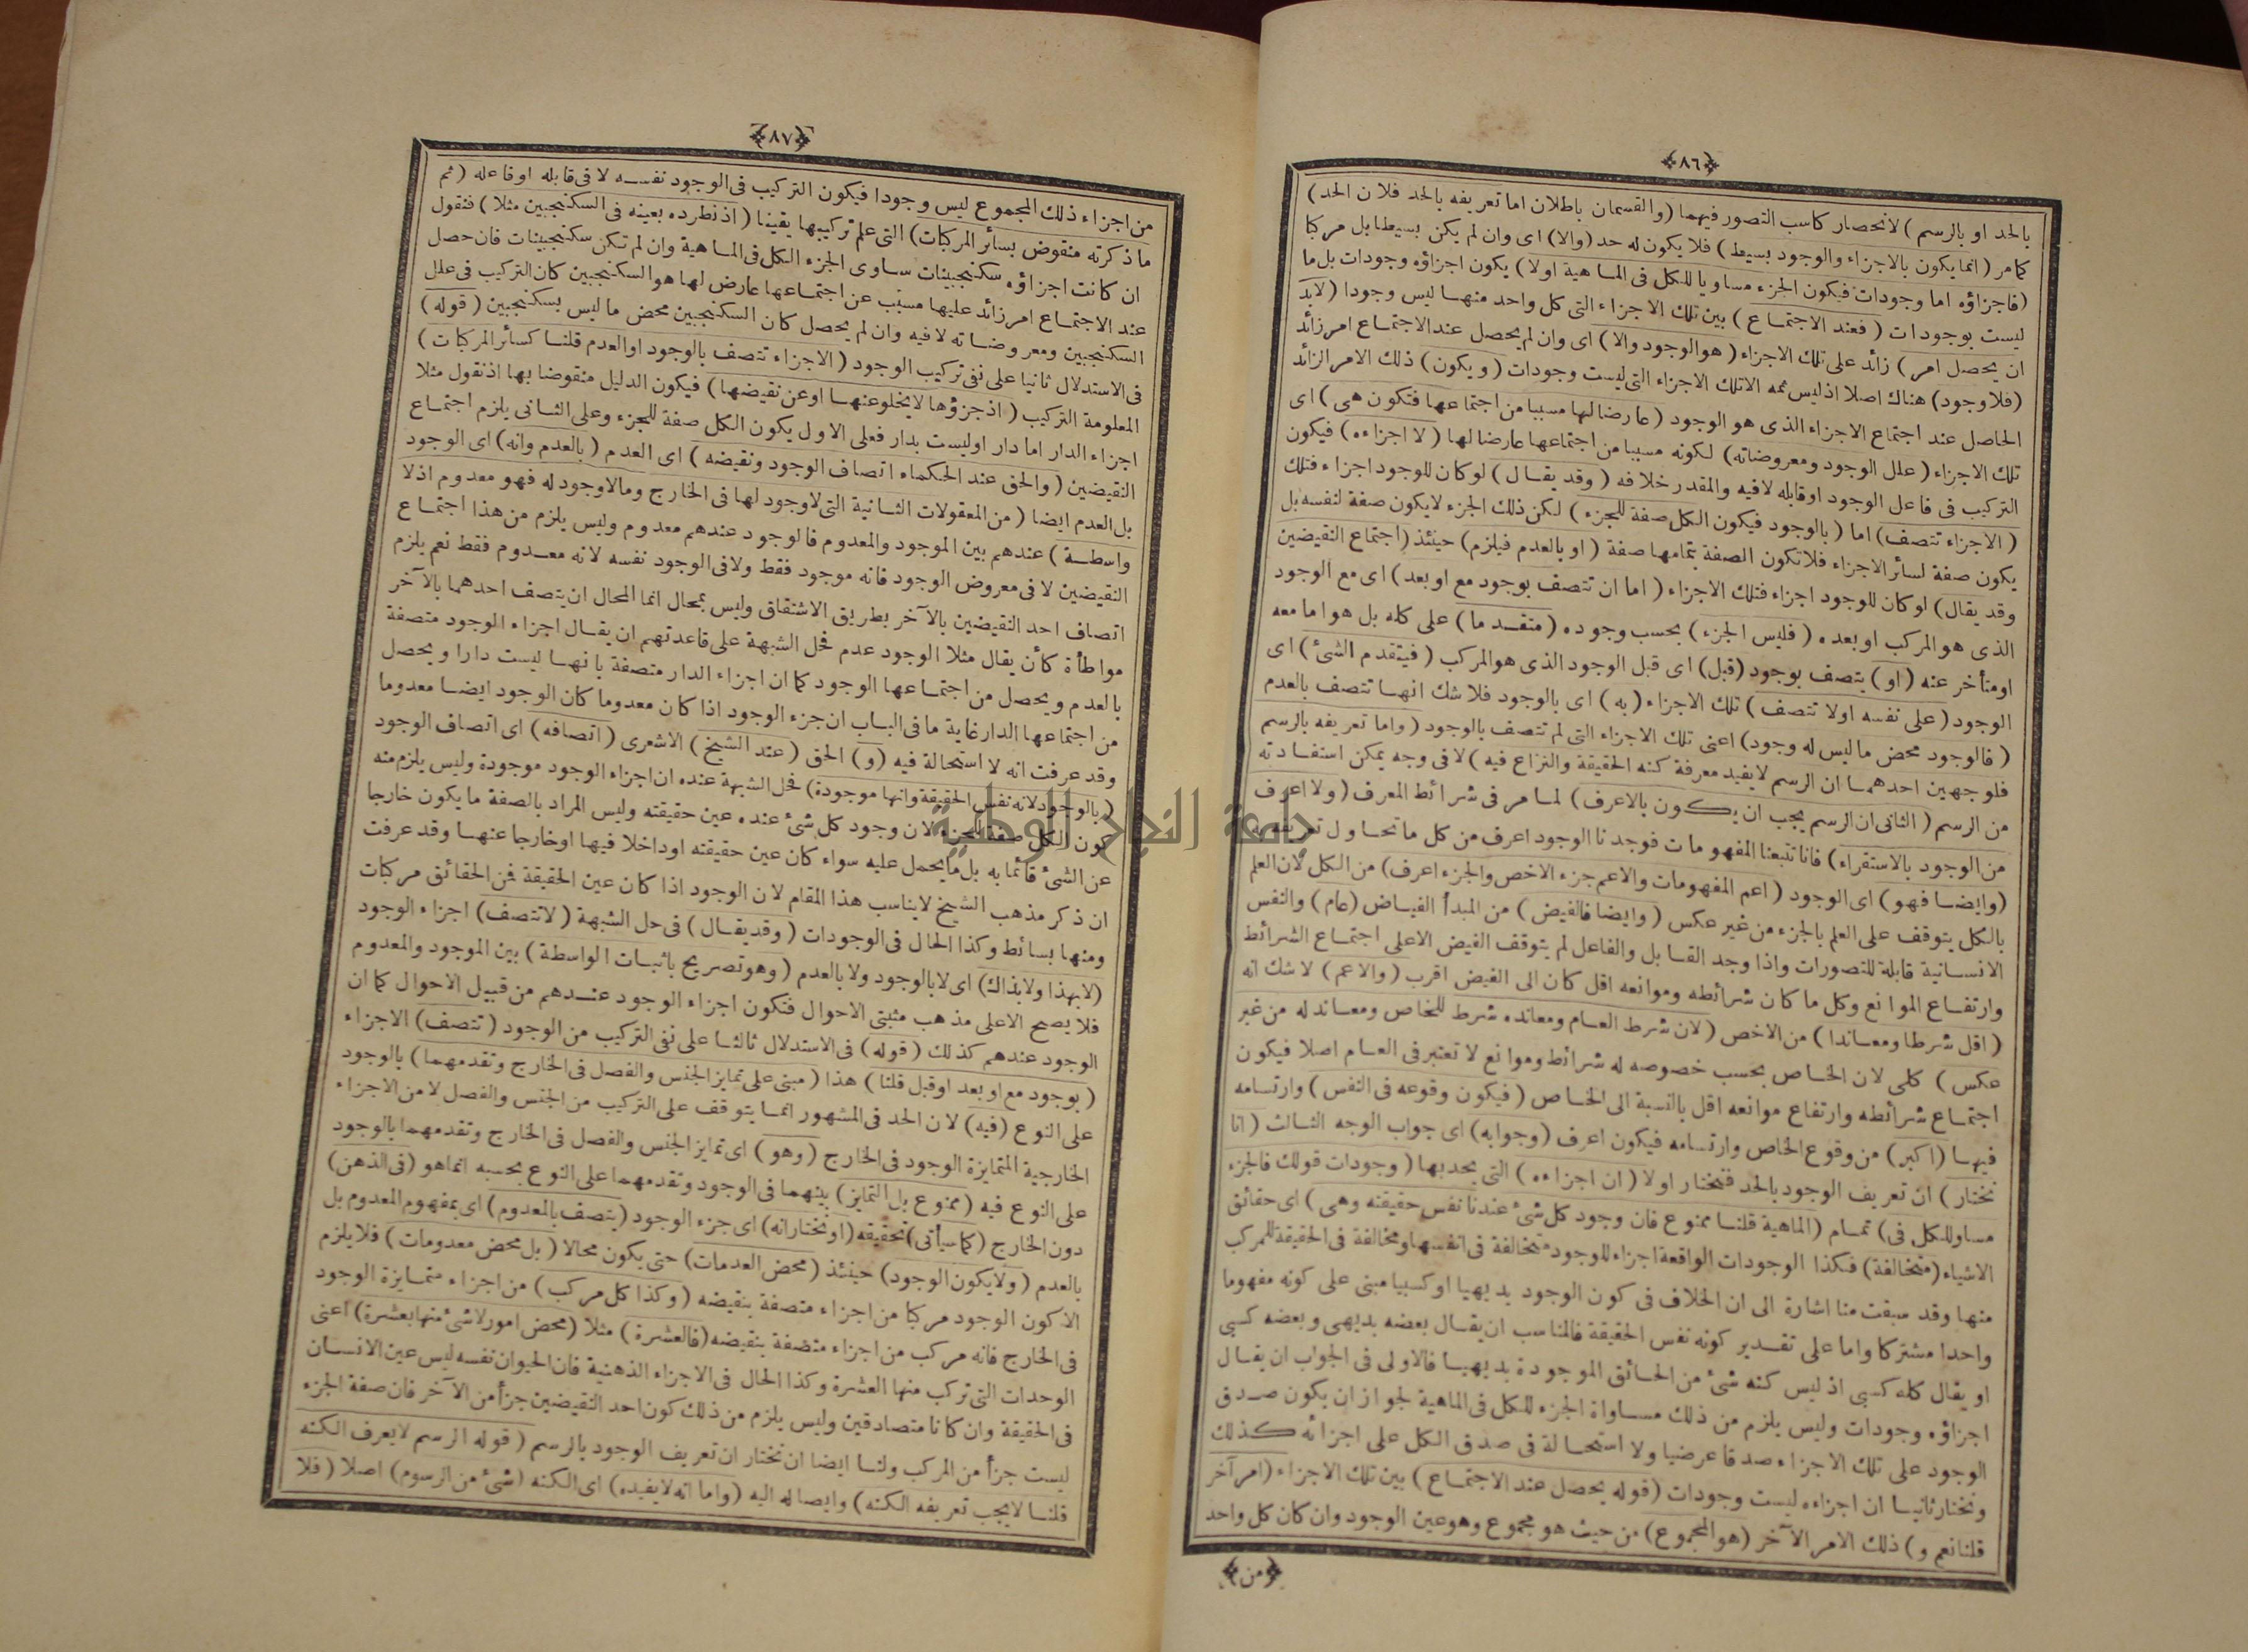 ﴿٨٦﴾
بالحد او بالرسم ) لانحصار كاسب التصور فيهما ( والقسمان باطلان اما تعريفه بالحد فلان الحد )
كما مر ( انما يكون بالاجزاء والوجود بسيط ) فلا يكون له حد ( والا ) اى وان لم يكن بسيطا بل مركبا
( فاجزاؤه اما وجودات فيكون الجزء مساويا للكل فى الماهية اولا ) يكون اجزاؤه وجودات بل ما
ليست بوجودات ( فعند الاجتماع ) بين تلك الاجزاء التى كل واحد منها ليس وجودا ( لابد
ان يحصل امر ) زائد على تلك الاجزاء ( هو الوجود والا ) اى وان لم يحصل عند الاجتماع امر زائد
( فلا وجود ) هناك اصلا اذ ليس ثمه الا تلك الاجزاء التى ليست وجودات ( ويكون ) ذلك الامر الزائد
الحاصل عند اجتماع الاجزاء الذى هو الوجود ( عارضا لها مسببا من اجتماعها فتكون هى ) اى
تلك الاجزاء ( علل الوجود ومعروضاته ) لكونه مسببا من اجتماعها عارضا لها ( لا اجزاءه ) فيكون
التركيب فى فاعل الوجود او قابله لا فيه والمقدر خلافه ( وقد يقال ) لو كان للوجود اجزاء فتلك
( الاجزاء تتصف ) اما ( بالوجود فيكون الكل صفة للجزء ) لكن ذلك الجزء لا يكون صفة لنفسه بل
يكون صفة لسائر الاجزاء فلا تكون الصفة بتمامها صفة ( او بالعدم فيلزم ) حينئذ ( اجتماع النقيضين
وقد يقال ) لو كان للوجود اجزاء فتلك الاجزاء ( اما ان تتصف بوجود مع او بعد ) اى مع الوجود
الذى هو المركب او بعده ( فليس الجزء ) بحسب وجوده ( متقدما ) على كله بل هو اما معه
او متأخر عنه ( او ) يتصف بوجود ( قبل ) اى قبل الوجود الذى هو المركب ( فيتقدم الشئ ) اى
الوجود ( على نفسه او لا تتصف ) تلك الاجزاء ( به ) اى بالوجود فلا شك انها تتصف بالعدم
( فالوجود محض ما ليس له وجود ) اعنى تلك الاجزاء التى لم تتصف بالوجود ( واما تعريفه بالرسم
فلوجهين احدهما ان الرسم لا يفيد معرفة كنه الحقيقة والنزاع فيه ) لا فى وجه يمكن استفادته
من الرسم ( الثانى ان الرسم يجب ان يكون بالاعرف ) لما مر فى شرائط المعرف ( ولا اعرف
من الوجود بالاستقراء ) فانا تتبعنا المفهومات فوجدنا الوجود اعرف من كل ما نحاول تعريفه به
( وايضا فهو ) اى الوجود ( اعم المفهومات والاعم جزء الاخص والجزء اعرف ) من الكل لان العلم
بالكل يتوقف على العلم بالجزء من غير عكس ( وايضا فالفيض ) من المبدأ الفياض ( عام ) والنفس
الانسانية قابلة للتصورات واذا وجد القابل والفاعل لم يتوقف الفيض الا على اجتماع الشرائط
وارتفاع الموانع وكل ما كان شرائطه وموانعه اقل كان الى الفيض اقرب ( والاعم ) لا شك انه
( اقل شرطا ومعاندا ) من الاخص ( لان شرط العام ومعانده شرط للخاص ومعاند له من غير
عكس ) كلى لان الخاص بحسب خصوصه له شرائط وموانع لا تعتبر فى العام اصلا فيكون
اجتماع شرائطه وارتفاع موانعه اقل بالنسبة الى الخاص ( فيكون وقوعه فى النفس ) وارتسامه
فيها ( اكبر ) من وقوع الخاص وارتسامه فيكون اعرف ( وجوابه ) اى جواب الوجه الثالث ( انا
نختار ) ان تعريف الوجود بالحد فنختار اولا ( ان اجزاءه ) التى يحد بها ( وجودات قولك فالجزء
مساو للكل فى ) تمام ( الماهية قلنا ممنوع فان وجود كل شئ عندنا نفس حقيقته وهى ) اى حقائق
الاشياء ( متخالفة ) فكذا الوجودات الواقعة اجزاء للوجود متخالفة فى انفسها ومخالفة فى الحقيقة للمركب
منها وقد سبقت منا اشارة الى ان الخلاف فى كون الوجود بديهيا او كسبيا مبنى على كونه مفهوما
واحدا مشتركا واما على تقدير كونه نفس الحقيقة فالمناسب ان يقال بعضه بديهى وبعضه كسبى
او يقال كله كسبى اذ ليس كنه شئ من الحقائق الموجودة بديهيا فالاولى فى الجواب ان يقال
اجزاؤه وجودات وليس يلزم من ذلك مساواة الجزء للكل فى الماهية لجواز ان يكون صدق
الوجود على تلك الاجزاء صدقا عرضيا ولا استحالة فى صدق الكل على اجزائه كذلك
ونختار ثانيا ان اجزاءه ليست وجودات ( قوله يحصل عند الاجتماع ) بين تلك الاجزاء ( امر آخر
قلنا نعم و ) ذلك الامر الآخر ( هو المجموع ) من حيث هو مجموع وهو عين الوجود وان كان كل واحد
﴿من﴾
﴿٨٧﴾
من اجزاء ذلك المجموع ليس وجودا فيكون التركيب فى الوجود نفسه لا فى قابله او فاعله ( ثم
ما ذكرته منقوض بسائر المركبات ) التى علم تركيبها يقينا ( اذ نطرده بعينه فى السكنجبين مثلا ) فنقول
ان كانت اجزاؤه سكنجبينات ساوى الجزء الكل فى الماهية وان لم تكن سكنجبينات فان حصل
عند الاجتماع امر زائد عليها مسبب عن اجتماعها عارض لها هو السكنجبين كان التركيب فى علل
السكنجبين ومعروضاته لا فيه وان لم يحصل كان السكنجبين محض ما ليس بسكنجبين ( قوله )
فى الاستدلال ثانيا على نفى تركيب الوجود ( الاجزاء تتصف بالوجود او العدم قلنا كسائر المركبات )
المعلومة التركيب ( اذ جزؤها لا يخلو عنها او عن نقيضها ) فيكون الدليل منقوضا بها اذ نقول مثلا
اجزاء الدار اما دار او ليست بدار فعلى الاول يكون الكل صفة للجزء وعلى الثانى يلزم اجتماع
النقيضين ( والحق عند الحكماء اتصاف الوجود ونقيضه ) اى العدم ( بالعدم وانه ) اى الوجود
بل العدم ايضا ( من المعقولات الثانية التى لا وجود لها فى الخارج وما لا وجود له فهو معدوم اذ لا
واسطة ) عندهم بين الموجود والمعدوم فالوجود عندهم معدوم وليس يلزم من هذا اجتماع
النقيضين لا فى معروض الوجود فانه موجود فقط ولا فى الوجود نفسه لانه معدوم فقط نعم يلزم
اتصاف احد النقيضين بالآخر بطريق الاشتقاق وليس بمحال انما المحال ان يتصف احدهما بالآخر
مواطأة كأن يقال مثلا الوجود عدم فحل الشبهة على قاعدتهم ان يقال اجزاء الوجود متصفة
بالعدم ويحصل من اجتماعها الوجود كما ان اجزاء الدار متصفة بانها ليست دارا ويحصل
من اجتماعها الدار غاية ما فى الباب ان جزء الوجود اذا كان معدوما كان الوجود ايضا معدوما
وقد عرفت انه لا استحالة فيه ( و ) الحق ( عند الشيخ ) الاشعرى ( اتصافه ) اى اتصاف الوجود
( بالوجود لانه نفس الحقيقة وانها موجودة ) فحل الشبهة عنده ان اجزاء الوجود موجودة وليس يلزم منه
كون الكل صفة للجزء لان وجود كل شئ عنده عين حقيقته وليس المراد بالصفة ما يكون خارجا
عن الشئ قائما به بل ما يحمل عليه سواء كان عين حقيقته او داخلا فيها او خارجا عنها وقد عرفت
ان ذكر مذهب الشيخ لا يناسب هذا المقام لان الوجود اذا كان عين الحقيقة فمن الحقائق مركبات
ومنها بسائط وكذا الحال فى الوجودات ( وقد يقال ) فى حل الشبهة ( لا تتصف ) اجزاء الوجود
( لا بهذا ولا بذاك ) اى لا بالوجود ولا بالعدم ( وهو تصريح باثبات الواسطة ) بين الموجود والمعدوم
فلا يصح الا على مذهب مثبتى الاحوال فتكون اجزاء الوجود عندهم من قبيل الاحوال كما ان
الوجود عندهم كذلك ( قوله ) فى الاستدلال ثالثا على نفى التركيب من الوجود ( تتصف ) الاجزاء
( بوجود مع او بعد او قبل قلنا ) هذا ( مبنى على تمايز الجنس والفصل فى الخارج وتقدمهما ) بالوجود
على النوع ( فيه ) لان الحد فى المشهور انما يتوقف على التركيب من الجنس والفصل لا من الاجزاء
الخارجية المتمايزة الوجود فى الخارج ( وهو ) اى تمايز الجنس والفصل فى الخارج وتقدمهما بالوجود
على النوع فيه ( ممنوع بل التمايز ) بينهما فى الوجود وتقدمهما على النوع بحسبه انما هو ( فى الذهن )
دون الخارج ( كما سيأتى ) تحقيقه ( او نختار انه ) اى جزء الوجود ( يتصف بالمعدوم ) اى بمفهوم المعدوم بل
بالعدم ( ولا يكون الوجود ) حينئذ ( محض العدمات ) حتى يكون محالا ( بل محض معدومات ) فلا يلزم
الا كون الوجود مركبا من اجزاء متصفة بنقيضه ( وكذا كل مركب ) من اجزاء متمايزة الوجود
فى الخارج فانه مركب من اجزاء متصفة بنقيضه ( فالعشرة ) مثلا ( محض امور لا شئ منها بعشرة ) اعنى
الوحدات التى تركب منها العشرة وكذا الحال فى الاجزاء الذهنية فان الحيوان نفسه ليس عين الانسان
فى الحقيقة وان كانا متصادقين وليس يلزم من ذلك كون احد النقيضين جزأ من الآخر فان صفة الجزء
ليست جزأ من المركب ولنا ايضا ان نختار ان تعريف الوجود بالرسم ( قوله الرسم لا يعرف الكنه
قلنا لا يجب تعريفه الكنه ) وايصاله اليه ( واما انه لا يفيده ) اى الكنه ( شئ من الرسوم ) اصلا ( فلا
جامعة النجاح الوطنية